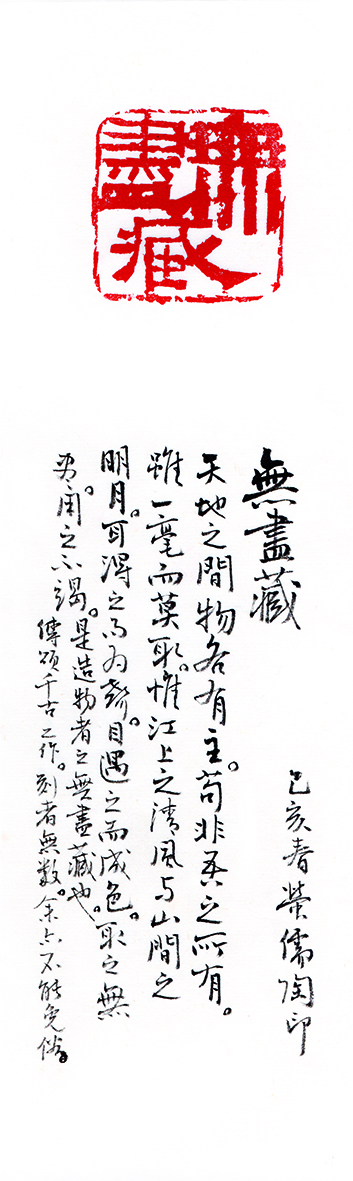 無盡藏
無盡藏
己亥春榮儒陶印
天地之間物各有主。苟非吾之所有。
雖一毫而莫取。惟江上之清風与山間之
明月。耳得之而为聲。目遇之而成色。取之無
禁。用之不竭。是造物者之無盡藏也。
傳頌千古之作。刻者無數。余亦不能免俗。